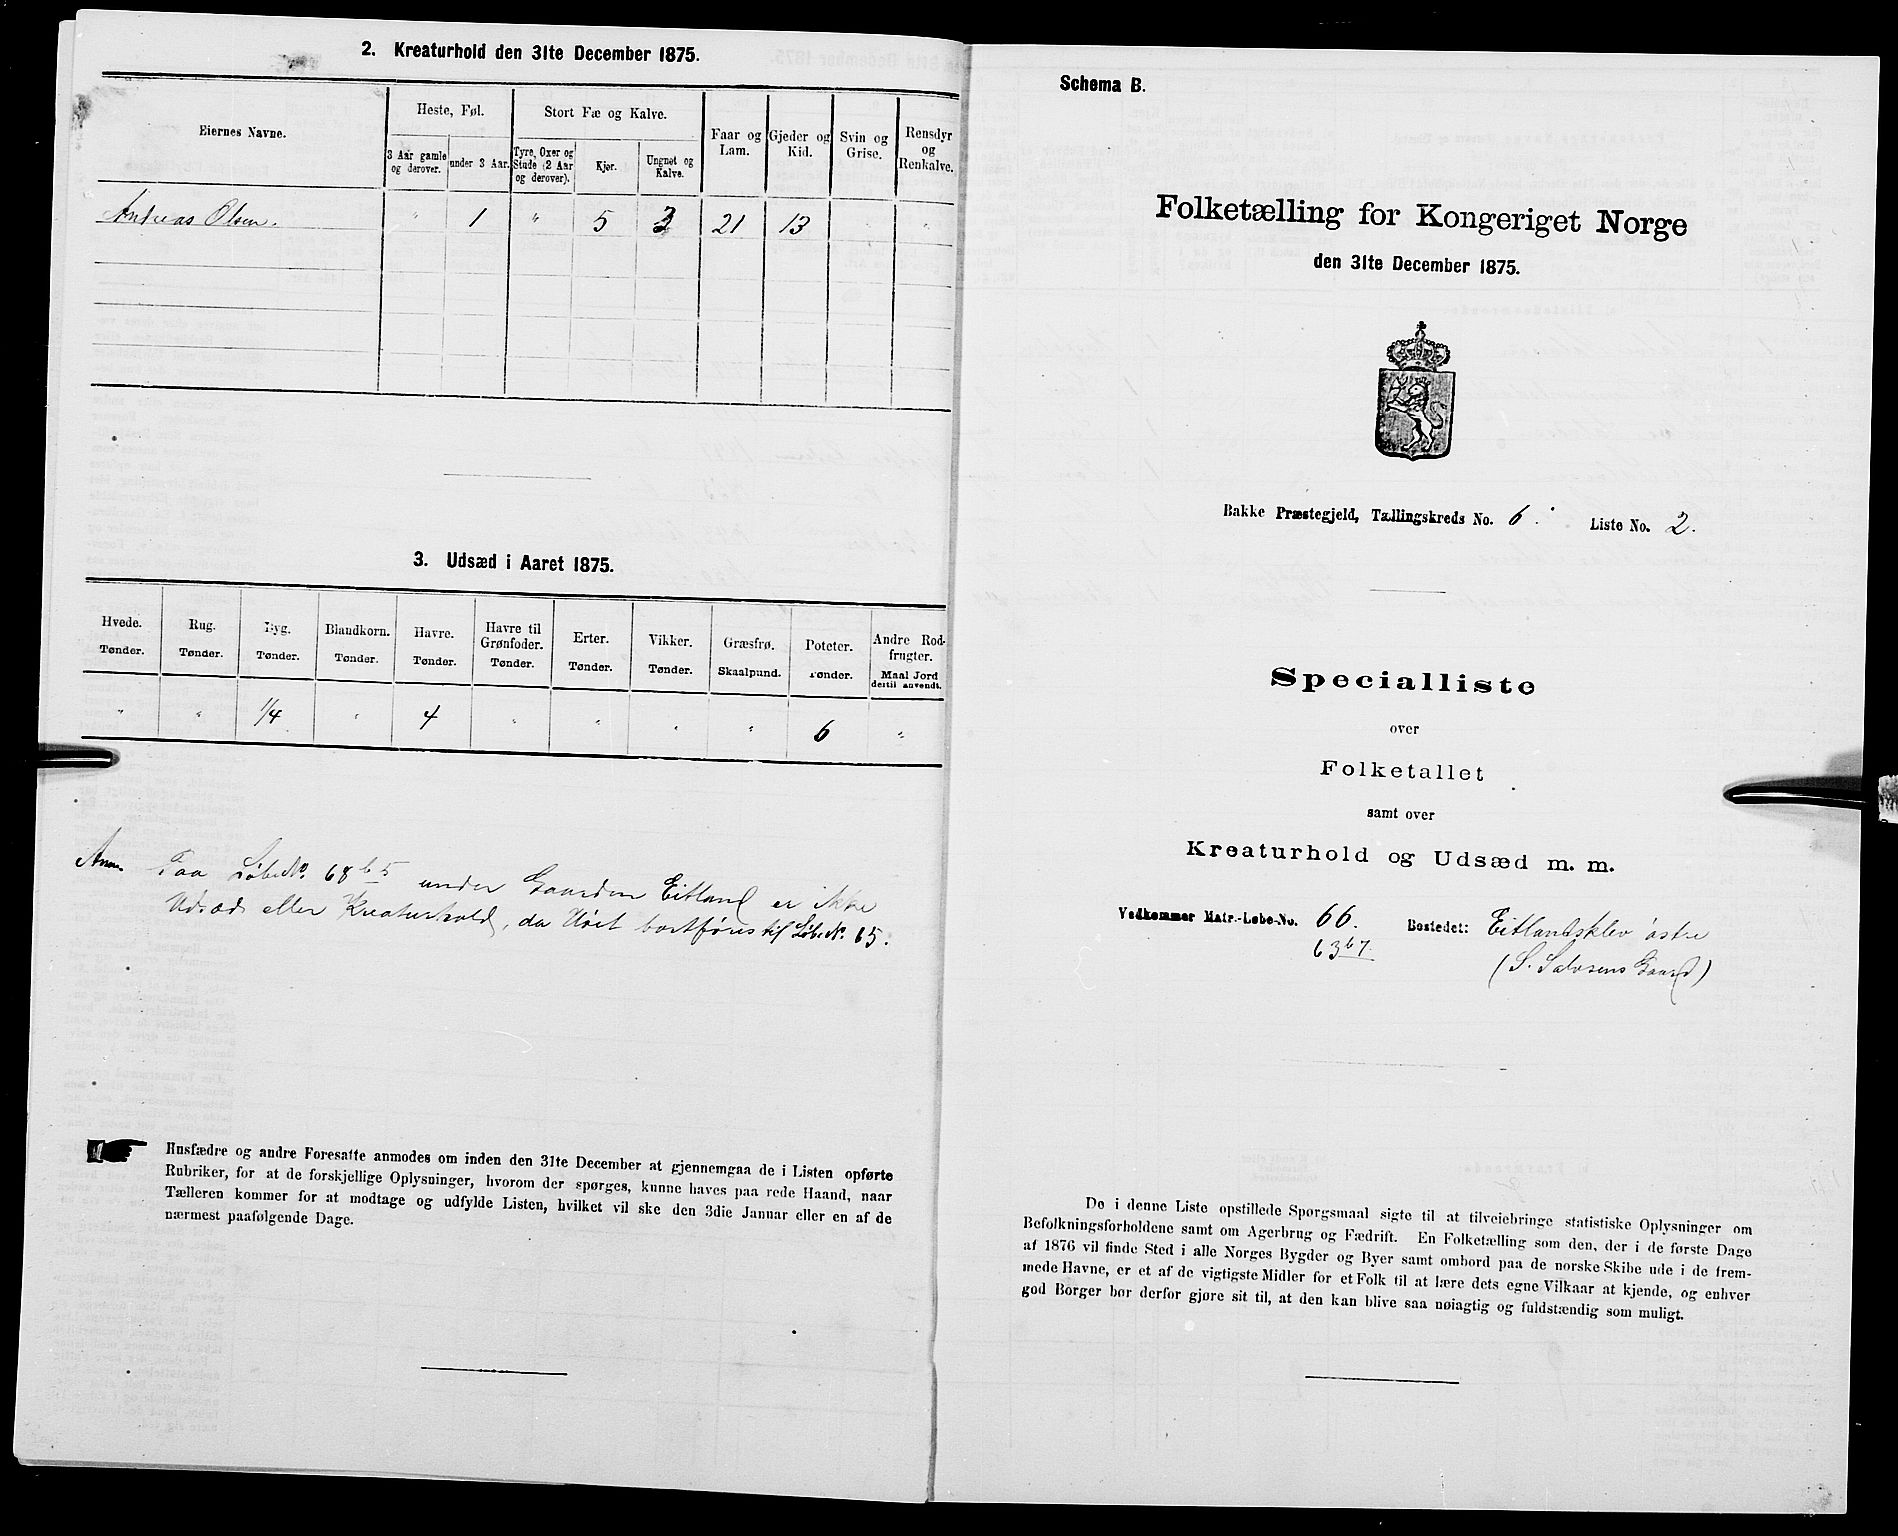 2. Kreaturhold den 31te December 1875.
Eiernes Navne.
Heste, Føl.
3 Aar gamle og derover.
under 3 Aar.
Stort Fæ og Kalve.
Tyre, Oxer og Stude (2 Aar og derover).
Kjør.
Ungnøt og Kalve.
Faar og Lam.
Gjeder og Kid.
Svin og Grise.
Rensdyr og Renkalve.
Andreas Olsen. " 1 " 5 3 21 13 " "
3. Udsæd i Aaret 1875.
Hvede. Rug. Byg. Blandkorn. Havre. Havre til Grønfoder. Erter. Vikker. Græsfrø. Poteter. Andre Rodfrugter.
Tønder. Tønder. Tønder. Tønder. Tønder. Tønder. Tønder. Tønder. Skaalpund. Tønder. Maal Jord dertil anvendt.
" " 1/4 " 4 " " " " 6 "
Anm. Paa LøbeNo. 68 b 5 under Gaarden Eitland er ikke
Udsæd eller Kreaturhold, da Høiet bortføres til LøbeNo. 65.
Husfædre og andre Foresatte anmodes om inden den 31te December at gjennemgaa de i Listen opførte
Rubriker, for at de forskjellige Oplysninger, hvorom der spørges, kunne haves paa rede Haand, naar
Tælleren kommer for at modtage og udfylde Listen, hvilket vil ske den 3die Januar eller en af de
nærmest paafølgende Dage.
Schema B.
Folketælling for Kongeriget Norge
den 31te December 1875.
Bakke Præstegjeld, Tællingskreds No. 6. Liste No. 2.
Specialliste
over
Folketallet
samt over
Kreaturhold og Udsæd m. m.
Vedkommer Matr.-Løbe-No. 66. Bostedet: Eitlandsklev østre
63 b 7. (S. Salvesens Gaard)
De i denne Liste opstillede Spørgsmaal sigte til at tilveiebringe statistiske Oplysninger om
Befolkningsforholdene samt om Agerbrug og Fædrift. En Folketælling som den, der i de første Dage
af 1876 vil finde Sted i alle Norges Bygder og Byer samt ombord paa de norske Skibe ude i de frem-
mede Havne, er et af de vigtigste Midler for et Folk til at lære dets egne Vilkaar at kjende, og enhver
god Borger bør derfor gjøre sit til, at den kan blive saa nøiagtig og fuldstændig som muligt.